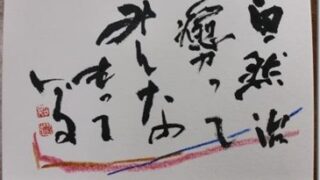 自然治
癒力って
みんなの
もって
いる